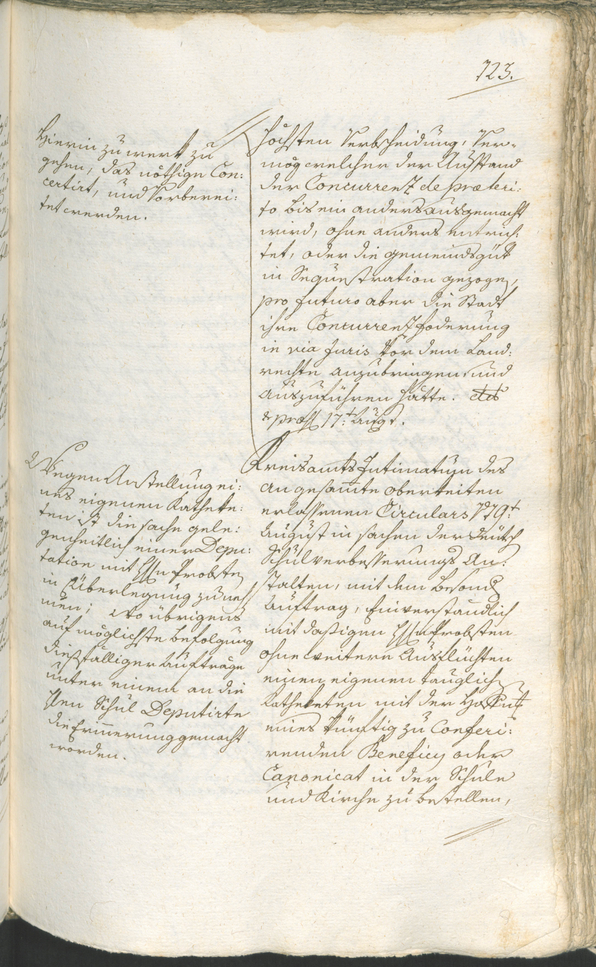 723.
Hierin zu werk zu
gehen, das nöthige Con:
certirt, und vorberei:
tet werden.
höchsten Verbscheidung, Ver-
mög welcher der Ausstand
der Concurrenz de præteri:
to bis ein anders ausgemacht
wird, ohne anders entrich:
tet, oder die gemeindsgüter
in Sequestration gezogen,
pro futuro aber die Stadt
ihre Concurrenzforderung
in via Juris vor dem Land:
rechte anzubringen und
auszuführen hätte.
& præs. 17t Augt.
Wegen Anstellung ei:
nes eigenen Kateche:
ten ist die sache gele:
genheitlich einer Depu:
tation mit Hn Probsten
in Überlegung zu neh
men; wo übrigens
auf möglichste befolgung
diesfälliger Aufträge
unter einem an die
Hen Schul Deputirte
die Erinnerung gemacht
worden.
Kreisamts Intimatum des
an gesamte oberkeiten
erlassenen Circulars 29t
August in sachen der deutsch
Schulverbesserungs An:
stalten, mit dem besond
Auftrag, Einverständlich
mit dasigen Hn Probsten
ohne weitere Ausflüchten
einen eigenen tauglich
Katecheten mit der
eines künftig zu Conferi:
renden Beneficy oder
Canonicat in der Schule
und Kirche zu bestellen,